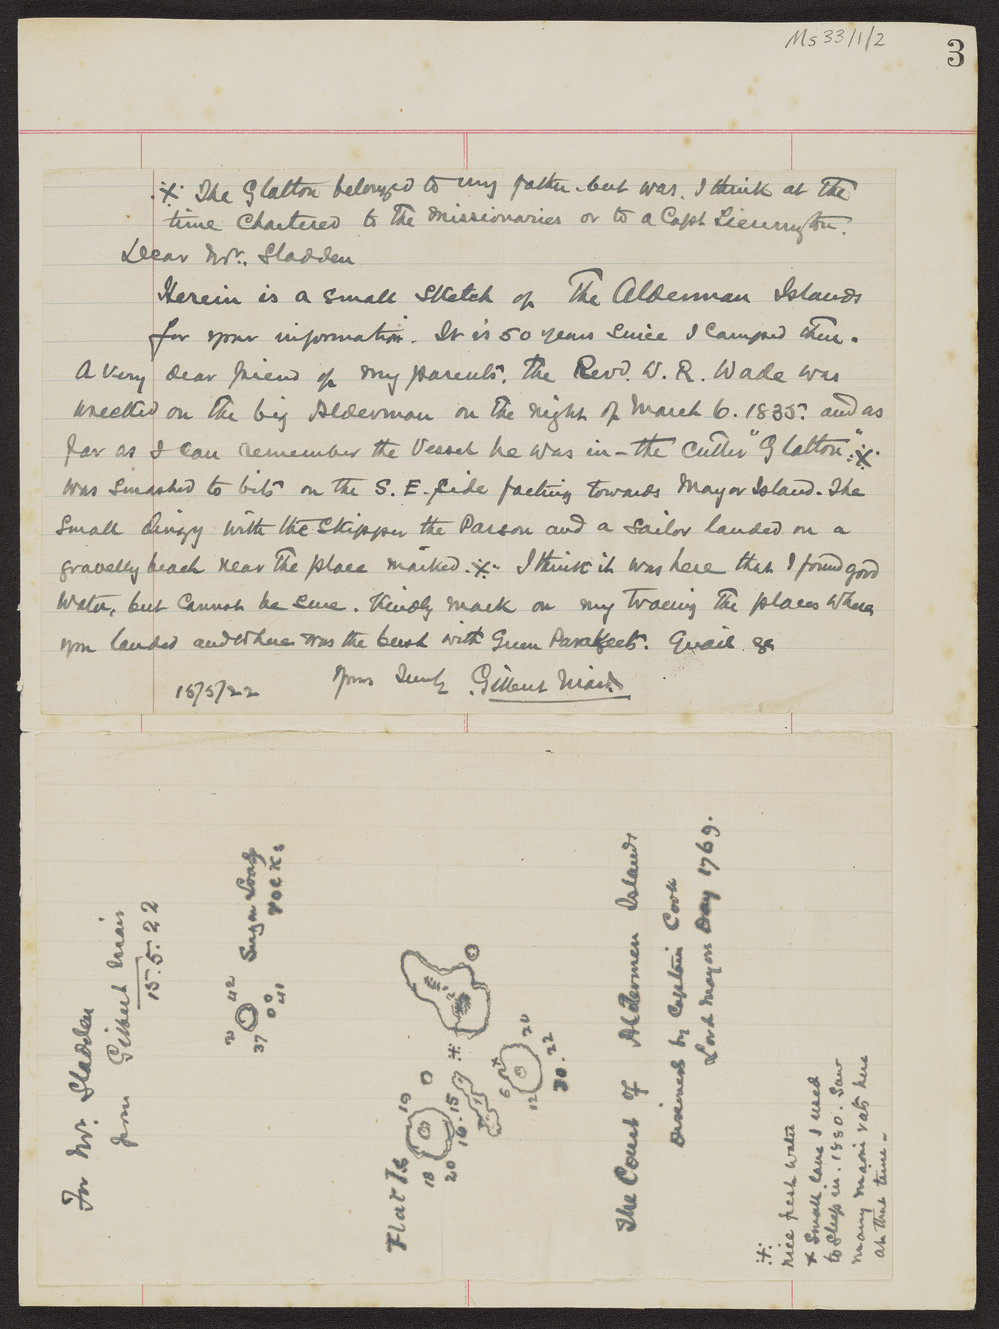 Ms 33/1/2
3
※ The Glatton belonged to my father - but was, I think at the
time Chartered to the Missionaries or to a Capt
Dear Mr. Sladden
Herein is a small sketch of The Alderman Islands
for your information. It is 50 years since I Camped there.
A very dear friend of my parents, the Revd. W. R. Wade was
wrecked on the big Alderman on the night of March 6. 1835. and as
far as I can remember the Vessel he was in - the Cutter "Glatton" ※
was smashed to bits on the S. E. side facing towards Mayor Island. The
small dingy with the Skipper the Parson and a Sailor landed on a
gravelly beach near the place marked ※ I think it was here that I found good
Water, but Cannot be sure. Kindly mark on my tracing the places where
you landed and where was the bush with Green Parakeets. Quail &c
Yours Truly Gilbert Mair
15/5/22
For Mr. Sladden
from Gilbert Mair
15.5.22
Sugar Loaf
rocks
20 42
37 41
Flat Is
19
18
20
16. 15
6
20
12
22
30.
The Court of Aldermen Islands
Discovered by Captain Cook
Lord Mayors Day 1769.
※
nice fresh water
x Small cave I used
to sleep in. 1880. Saw
many maori rats here
at that time -